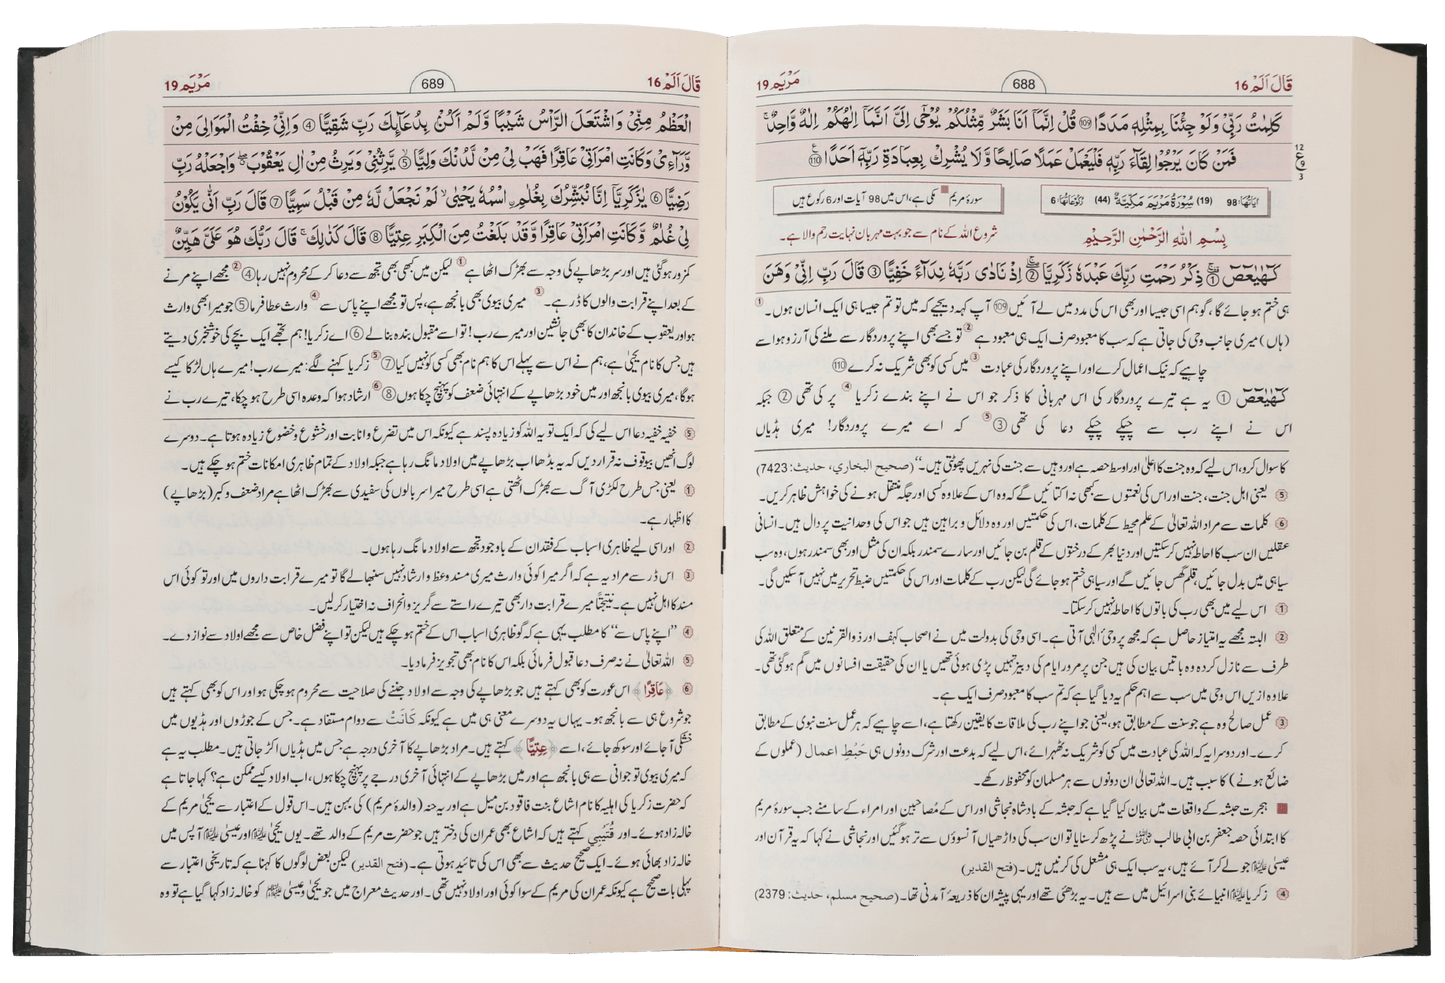 قَالَ اَلَمْ 16
688
مَرْيَم 19
كَلِمٰتُ رَبِّیْ وَلَوْ جِئْنَا بِمِثْلِهٖ مَدَدًا ۝109 قُلْ اِنَّمَاۤ اَنَا بَشَرٌ مِّثْلُكُمْ یُوْحٰۤی اِلَیَّ اَنَّمَاۤ اِلٰهُكُمْ اِلٰهٌ وَّاحِدٌ ۚ
فَمَنْ كَانَ یَرْجُوْا لِقَآءَ رَبِّهٖ فَلْیَعْمَلْ عَمَلًا صَالِحًا وَّلَا یُشْرِكْ بِعِبَادَةِ رَبِّهٖۤ اَحَدًا ۝110
اٰیَاتُهَا: 98 (19) سُوْرَةُ مَرْیَمَ مَكِّیَّةٌ (44) رُكُوْعَاتُهَا: 6
سورۂ مریم مکی ہے، اس میں 98 آیات اور 6 رکوع ہیں
بِسْمِ اللّٰهِ الرَّحْمٰنِ الرَّحِیْمِ
شروع اللہ کے نام سے جو بہت مہربان نہایت رحم والا ہے۔
كٓهٰیٰعٓصٓ ۝1 ذِكْرُ رَحْمَتِ رَبِّكَ عَبْدَهٗ زَكَرِیَّا ۝2 اِذْ نَادٰی رَبَّهٗ نِدَآءً خَفِیًّا ۝3 قَالَ رَبِّ اِنِّیْ وَهَنَ
ہی ختم ہو جائے گا، گو ہم اسی جیسا اور بھی اس کی مدد میں لے آئیں (109) آپ کہہ دیجیے کہ میں تو تم جیسا ہی ایک انسان ہوں۔ ①
(ہاں) میری جانب وحی کی جاتی ہے کہ سب کا معبود صرف ایک ہی معبود ہے ② تو جسے بھی اپنے پروردگار سے ملنے کی آرزو ہو اسے
چاہیے کہ نیک اعمال کرے اور اپنے پروردگار کی عبادت ③ میں کسی کو بھی شریک نہ کرے (110)
كٓهٰیٰعٓصٓ ① یہ ہے تیرے پروردگار کی اس مہربانی کا ذکر جو اس نے اپنے بندے زکریا ④ پر کی تھی ② جبکہ
اس نے اپنے رب سے چپکے چپکے دعا کی تھی ③ ⑤ کہ اے میرے پروردگار! میری ہڈیاں
کا سوال کرو، اس لیے کہ وہ جنت کا اعلیٰ اور اوسط حصہ ہے اور وہیں سے جنت کی نہریں پھوٹتی ہیں۔" (صحیح البخاری، حدیث: 7423)
⑤ یعنی اہل جنت، جنت اور اس کی نعمتوں سے کبھی نہ اکتائیں گے کہ وہ اس کے علاوہ کسی اور جگہ منتقل ہونے کی خواہش ظاہر کریں۔
⑥ کلمات سے مراد اللہ تعالیٰ کے علم محیط کے کلمات، اس کی حکمتیں اور وہ دلائل و براہین ہیں جو اس کی وحدانیت پر دال ہیں۔ انسانی
عقلیں ان سب کا احاطہ نہیں کر سکتیں اور دنیا بھر کے درختوں کے قلم بن جائیں اور سارے سمندر بلکہ ان کی مثل اور بھی سمندر ہوں، وہ سب
سیاہی میں بدل جائیں، قلم گھس جائیں گے اور سیاہی ختم ہو جائے گی لیکن رب کے کلمات اور اس کی حکمتیں ضبط تحریر میں نہیں آ سکیں گی۔
① اس لیے میں بھی رب کی باتوں کا احاطہ نہیں کر سکتا۔
② البتہ مجھے یہ امتیاز حاصل ہے کہ مجھ پر وحی الٰہی آتی ہے۔ اسی وحی کی بدولت میں نے اصحاب کہف اور ذوالقرنین کے متعلق اللہ کی
طرف سے نازل کردہ وہ باتیں بیان کی ہیں جن پر مرور ایام کی دبیز تہیں پڑی ہوئی تھیں یا ان کی حقیقت افسانوں میں گم ہو گئی تھی۔
علاوہ ازیں اس وحی میں سب سے اہم حکم یہ دیا گیا ہے کہ تم سب کا معبود صرف ایک ہے۔
③ عمل صالح وہ ہے جو سنت کے مطابق ہو، یعنی جو اپنے رب کی ملاقات کا یقین رکھتا ہے، اسے چاہیے کہ ہر عمل سنت نبوی کے مطابق
کرے۔ اور دوسرا یہ کہ اللہ کی عبادت میں کسی کو شریک نہ ٹھہرائے، اس لیے کہ بدعت اور شرک دونوں ہی حَبْطِ اعمال (عملوں کے
ضائع ہونے) کا سبب ہیں۔ اللہ تعالیٰ ان دونوں سے ہر مسلمان کو محفوظ رکھے۔
■ ہجرت حبشہ کے واقعات میں بیان کیا گیا ہے کہ حبشہ کے بادشاہ نجاشی اور اس کے مصاحبین اور امراء کے سامنے جب سورۂ مریم
کا ابتدائی حصہ جعفر بن ابی طالب نے پڑھ کر سنایا تو ان سب کی داڑھیاں آنسوؤں سے تر ہو گئیں اور نجاشی نے کہا کہ یہ قرآن اور
عیسیٰ جو لے کر آئے ہیں، یہ سب ایک ہی مشعل کی کرنیں ہیں۔ (فتح القدیر)
④ زکریا انبیائے بنی اسرائیل میں سے ہیں۔ یہ بڑھئی تھے اور یہی پیشہ ان کا ذریعۂ آمدنی تھا۔ (صحیح مسلم، حدیث: 2379)
قَالَ اَلَمْ 16
689
مَرْيَم 19
الْعَظْمُ مِنِّیْ وَاشْتَعَلَ الرَّاْسُ شَیْبًا وَّلَمْ اَكُنْۢ بِدُعَآىِٕكَ رَبِّ شَقِیًّا ۝4 وَاِنِّیْ خِفْتُ الْمَوَالِیَ مِنْ
وَّرَآءِیْ وَكَانَتِ امْرَاَتِیْ عَاقِرًا فَهَبْ لِیْ مِنْ لَّدُنْكَ وَلِیًّا ۝5 یَّرِثُنِیْ وَیَرِثُ مِنْ اٰلِ یَعْقُوْبَ ۖۗ وَاجْعَلْهُ رَبِّ
رَضِیًّا ۝6 یٰزَكَرِیَّاۤ اِنَّا نُبَشِّرُكَ بِغُلٰمِ ِ۟اسْمُهٗ یَحْیٰی ۙ لَمْ نَجْعَلْ لَّهٗ مِنْ قَبْلُ سَمِیًّا ۝7 قَالَ رَبِّ اَنّٰی یَكُوْنُ
لِیْ غُلٰمٌ وَّكَانَتِ امْرَاَتِیْ عَاقِرًا وَّقَدْ بَلَغْتُ مِنَ الْكِبَرِ عِتِیًّا ۝8 قَالَ كَذٰلِكَ ۚ قَالَ رَبُّكَ هُوَ عَلَیَّ هَیِّنٌ
کمزور ہو گئی ہیں اور سر بڑھاپے کی وجہ سے بھڑک اٹھا ہے ① لیکن میں کبھی بھی تجھ سے دعا کر کے محروم نہیں رہا ④ ② مجھے اپنے مرنے
کے بعد اپنے قرابت والوں کا ڈر ہے۔ ③ میری بیوی بھی بانجھ ہے، پس تو مجھے اپنے پاس سے ④ وارث عطا فرما ⑤ جو میرا بھی وارث
ہو اور یعقوب کے خاندان کا بھی جانشین اور میرے رب! تو اسے مقبول بندہ بنا لے ⑥ اے زکریا! ہم تجھے ایک بچے کی خوشخبری دیتے
ہیں جس کا نام یحییٰ ہے، ہم نے اس سے پہلے اس کا ہم نام بھی کسی کو نہیں کیا ⑦ ⑤ زکریا کہنے لگے: میرے رب! میرے ہاں لڑکا کیسے
ہو گا، میری بیوی بانجھ اور میں خود بڑھاپے کے انتہائی ضعف کو پہنچ چکا ہوں ⑧ ⑥ ارشاد ہوا کہ وعدہ اسی طرح ہو چکا، تیرے رب نے
⑤ خفیہ خفیہ دعا اس لیے کی کہ ایک تو یہ اللہ کو زیادہ پسند ہے کیونکہ اس میں تضرع و انابت اور خشوع و خضوع زیادہ ہوتا ہے۔ دوسرے
لوگ انھیں بیوقوف نہ قرار دیں کہ یہ بڈھا اب بڑھاپے میں اولاد مانگ رہا ہے جبکہ اولاد کے تمام ظاہری امکانات ختم ہو چکے ہیں۔
① یعنی جس طرح لکڑی آگ سے بھڑک اٹھتی ہے اسی طرح میرا سر بالوں کی سفیدی سے بھڑک اٹھا ہے مراد ضعف و کبر (بڑھاپے)
کا اظہار ہے۔
② اور اسی لیے ظاہری اسباب کے فقدان کے باوجود تجھ سے اولاد مانگ رہا ہوں۔
③ اس ڈر سے مراد یہ ہے کہ اگر میرا کوئی وارث میری مسند وعظ و ارشاد نہیں سنبھالے گا تو میرے قرابت داروں میں اور تو کوئی اس
مسند کا اہل نہیں ہے۔ نتیجتاً میرے قرابت دار بھی تیرے راستے سے گریز و انحراف نہ اختیار کر لیں۔
④ "اپنے پاس سے" کا مطلب یہی ہے کہ گو ظاہری اسباب اس کے ختم ہو چکے ہیں لیکن تو اپنے فضل خاص سے مجھے اولاد سے نواز دے۔
⑤ اللہ تعالیٰ نے نہ صرف دعا قبول فرمائی بلکہ اس کا نام بھی تجویز فرما دیا۔
⑥ ﴿عَاقِرًا﴾ اس عورت کو بھی کہتے ہیں جو بڑھاپے کی وجہ سے اولاد جننے کی صلاحیت سے محروم ہو چکی ہو اور اس کو بھی کہتے ہیں
جو شروع ہی سے بانجھ ہو۔ یہاں یہ دوسرے معنی ہی میں ہے کیونکہ كَانَتْ سے دوام مستفاد ہے۔ جس کے جوڑوں اور ہڈیوں میں
خشکی آ جائے اور سوکھ جائے، اسے ﴿عِتِیًّا﴾ کہتے ہیں۔ مراد بڑھاپے کا آخری درجہ ہے جس میں ہڈیاں اکڑ جاتی ہیں۔ مطلب یہ ہے
کہ میری بیوی تو جوانی سے ہی بانجھ ہے اور میں بڑھاپے کے انتہائی آخری درجے پر پہنچ چکا ہوں، اب اولاد کیسے ممکن ہے؟ کہا جاتا ہے
کہ حضرت زکریا کی اہلیہ کا نام اشاع بنت فاقود بن میل ہے اور یہ حنہ (والدۂ مریم) کی بہن ہیں۔ اس قول کے اعتبار سے یحییٰ مریم کے
خالہ زاد ہوئے۔ اور قُتَیْبِی کہتے ہیں کہ اشاع بھی عمران کی دختر ہیں جو حضرت مریم کے والد تھے۔ یوں یحییٰ اور عیسیٰ آپس میں
خالہ زاد بھائی ہوئے۔ ایک صحیح حدیث سے بھی اس کی تائید ہوتی ہے۔ (فتح القدیر) لیکن بعض لوگوں کا کہنا ہے کہ تاریخی اعتبار سے
پہلی بات صحیح ہے کیونکہ عمران کی مریم کے سوا کوئی اور اولاد نہیں تھی۔ اور حدیث معراج میں جو یحییٰ و عیسیٰ کو خالہ زاد کہا گیا ہے تو وہ